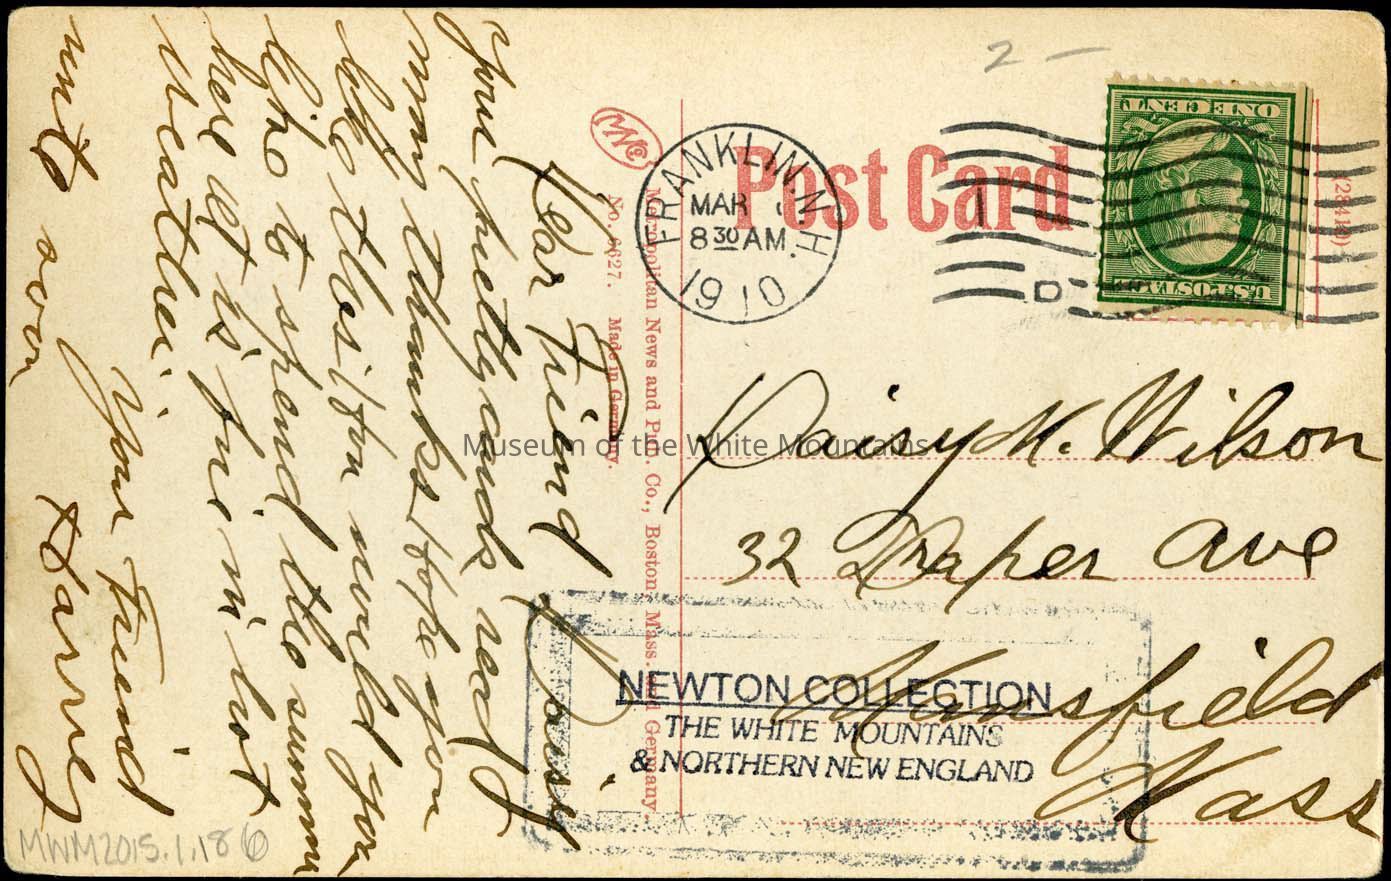 2 —
Post Card
ONE CENT
U.S. POSTA
FRANKLIN. N.H.
MAR
8 30 AM
1910
D
(28414)
MNCo
Metropolitan News and Pub. Co., Boston, Mass. and Germany.
No. 6627. Made in Germany.
Daisy M. Wilson
32 Draper Ave
Mansfield
Mass
Dear Friend Daisy
your pretty cards recd
many thanks hope you
like this one would you
like to spend the summer
here it is fine in hot
weather
Your Friend
Harvey
write soon
NEWTON COLLECTION
THE WHITE MOUNTAINS
& NORTHERN NEW ENGLAND
Museum of the White Mountains
MWM2015.1.186